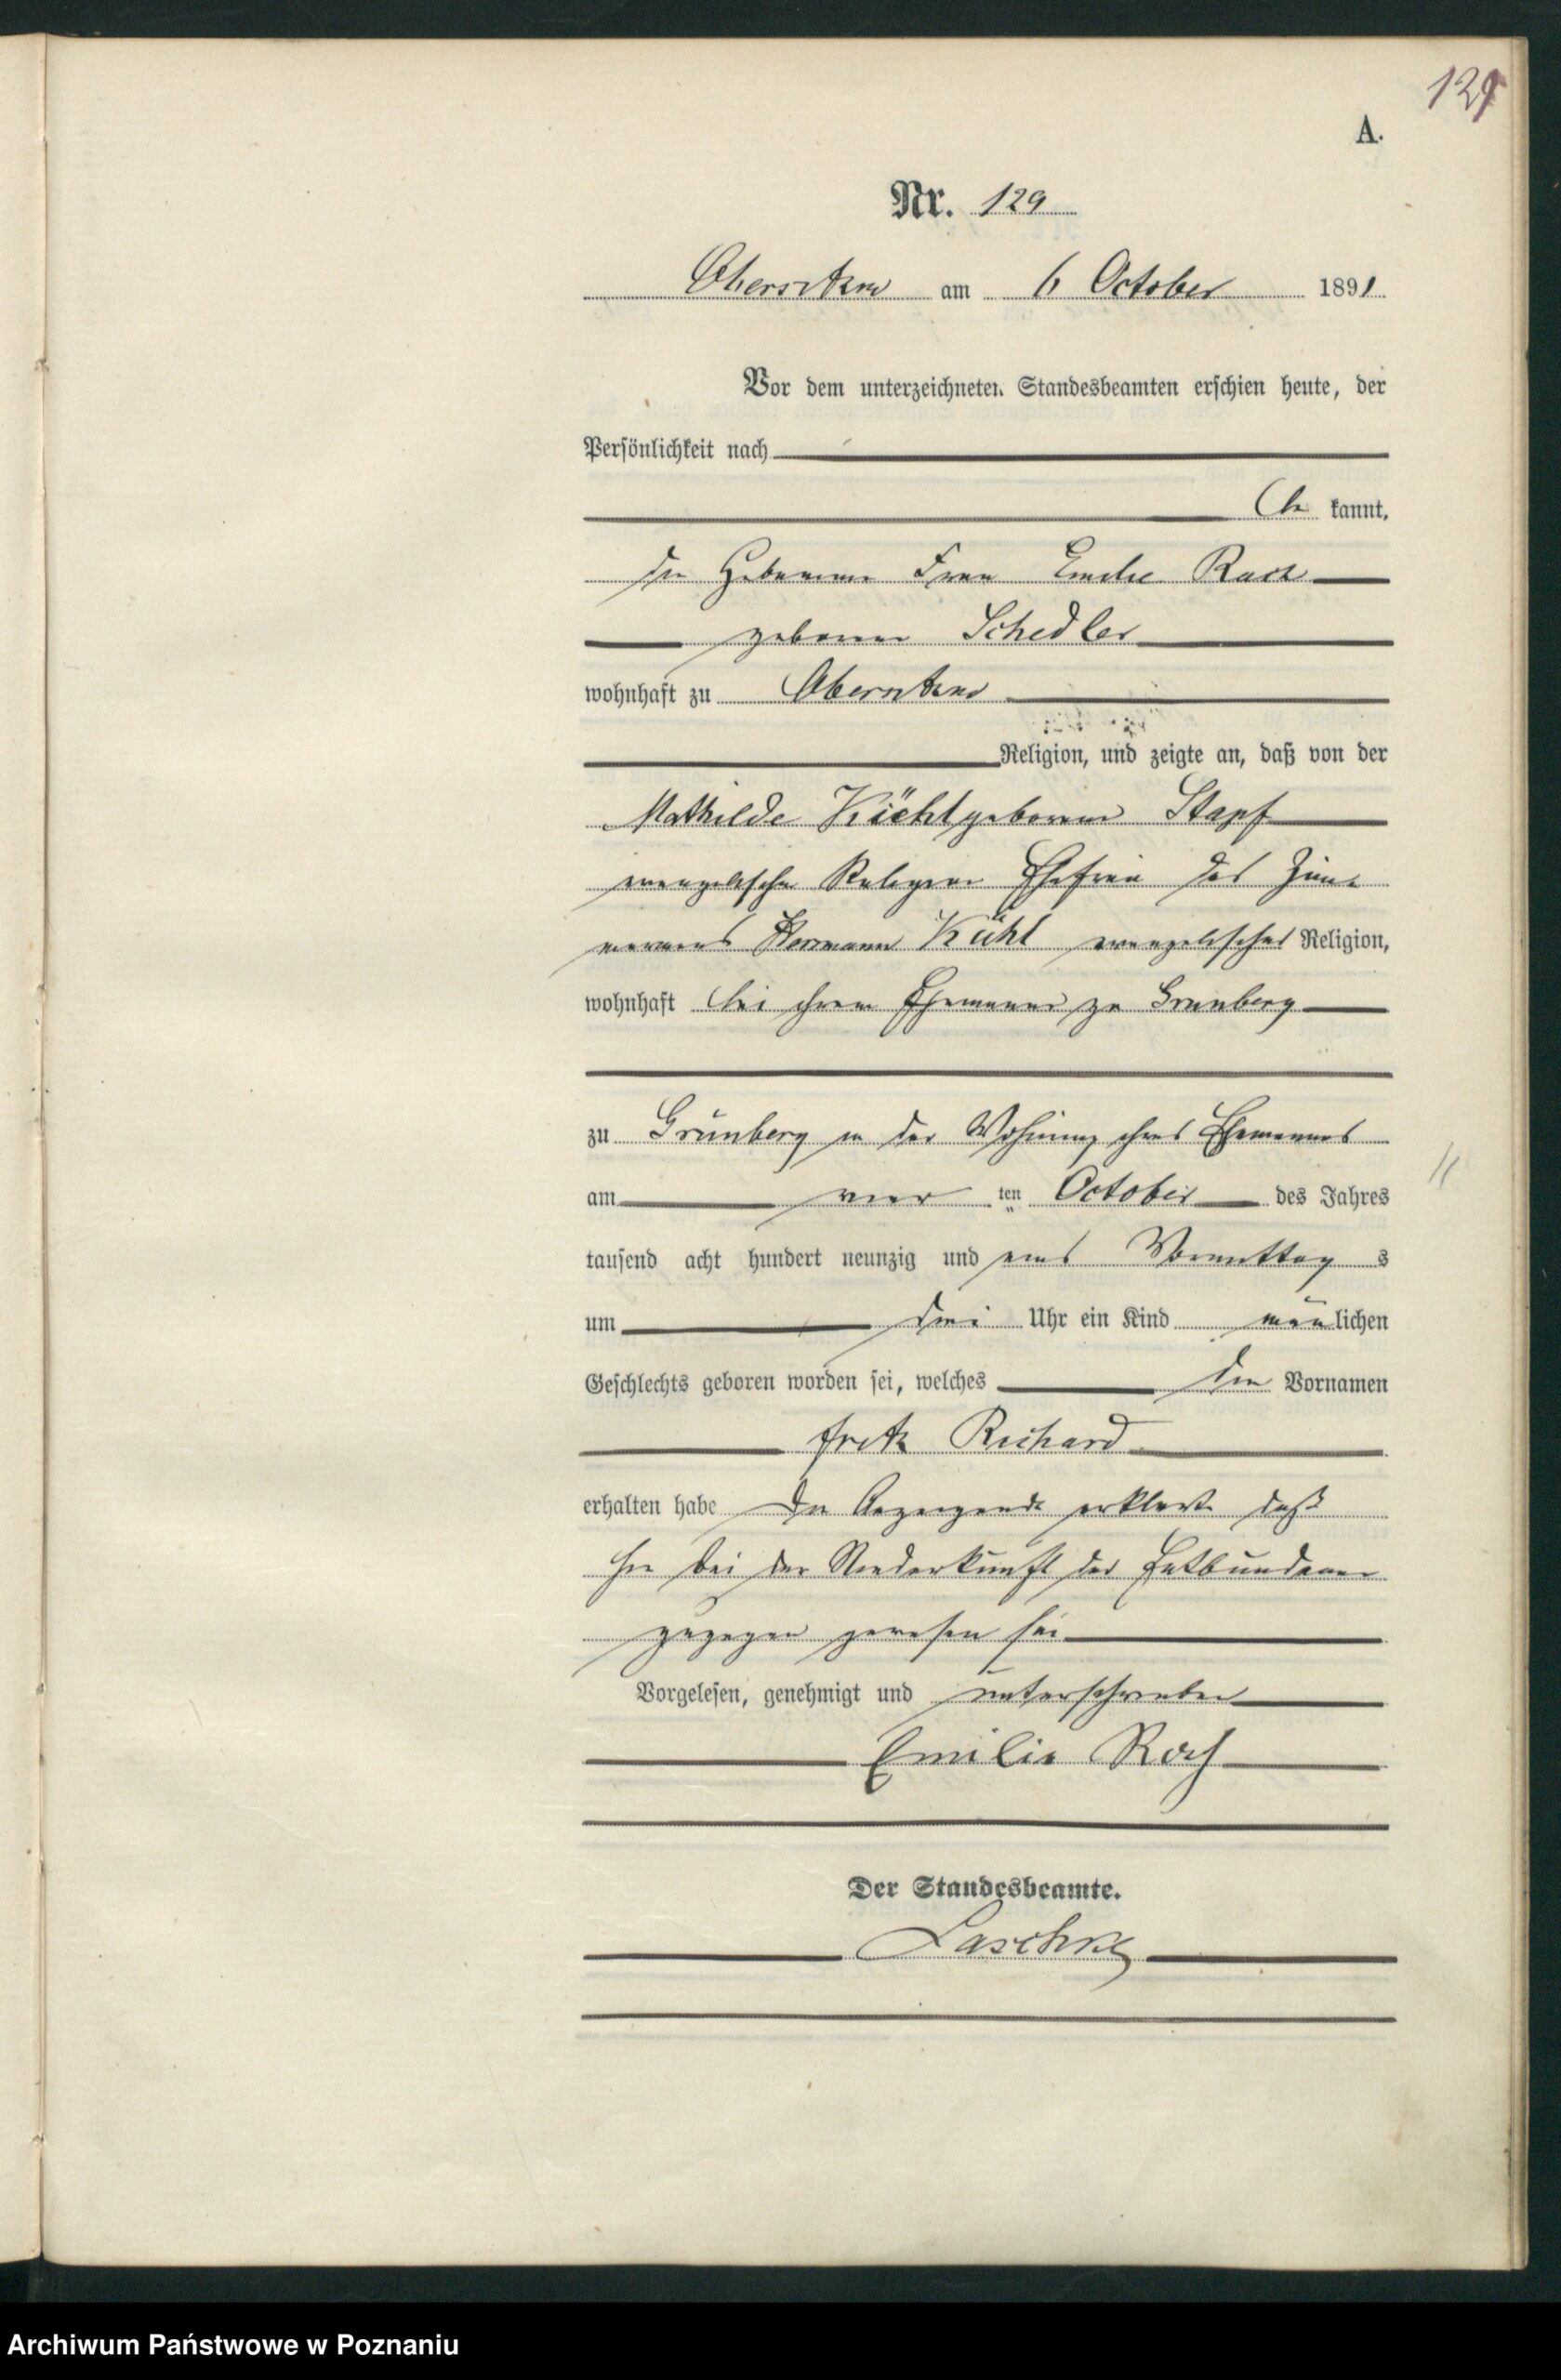 129
A.
Nr. 129
Obersitzko am 6 October 1891
Vor dem unterzeichneten Standesbeamten erschien heute, der
Persönlichkeit nach
be kannt,
die Hebamme Frau Emilie Rach
geborene Schedler
wohnhaft zu Obersitzko
Religion, und zeigte an, daß von der
Mathilde Kühl geborene Stapf
evangelischer Religion Ehefrau des Zim-
mermanns Hermann Kühl evangelischer Religion,
wohnhaft bei ihrem Ehemanne zu Grünberg
zu Grünberg in der Wohnung ihres Ehemannes
am vier ten October des Jahres
tausend acht hundert neunzig und eins Vormittag s
um drei Uhr ein Kind män lichen
Geschlechts geboren worden sei, welches die Vornamen
Fritz Richard
erhalten habe Die Anzeigende erklärte daß
sie bei der Niederkunft der Entbundenen
zugegen gewesen sei
Vorgelesen, genehmigt und unterschrieben
Emilie Rach
Der Standesbeamte.
Laschke
Archiwum Państwowe w Poznaniu